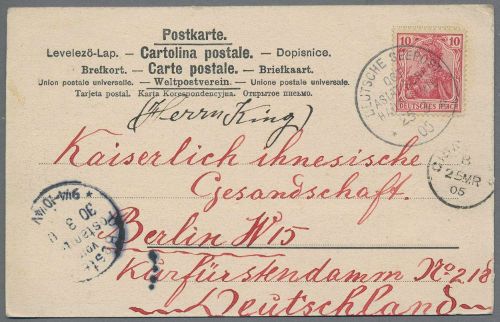 Postkarte.
Levelező-Lap. — Cartolina postale. — Dopisnice.
Brefkort. — Carte postale. — Briefkaart.
Union postale universelle. — Weltpostverein. — Unione postale universale.
Tarjeta postal. Karta Korespondencyjna. Открытое письмо.
10 10
DEUTSCHES REICH
DEUTSCHE SEEPOST
25
05
(Herrn King)
Kaiserlich ihnesische
Gesandschaft.
B
25 MR
05
Berlin W15
9¼-10¼V
30 3
Kurfürstendamm No 218
Deutschland